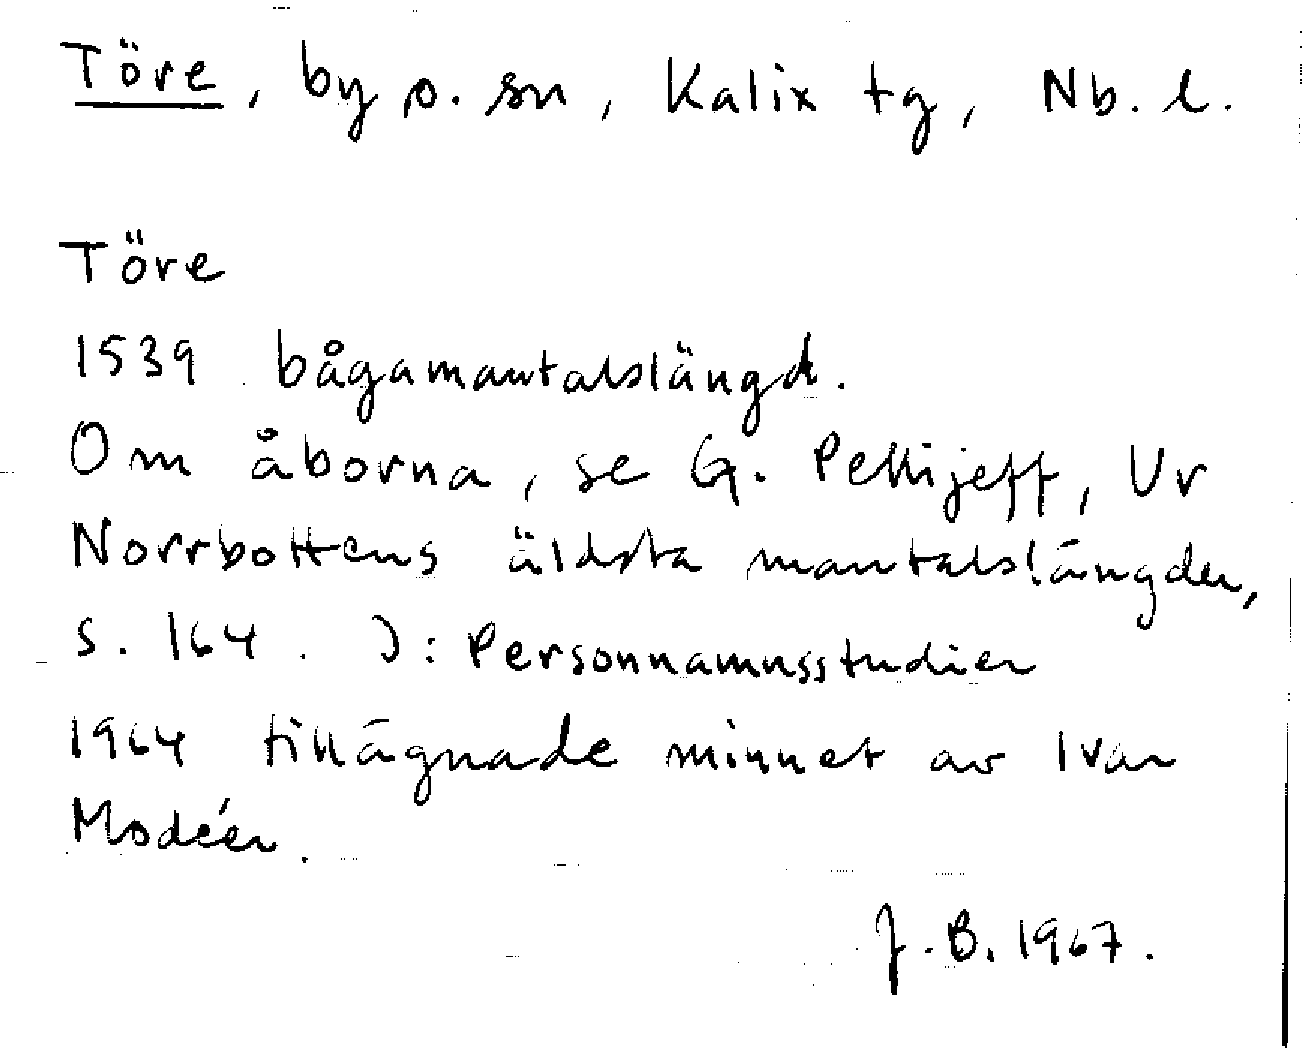 Töre, by o. sn, Kalix tg, Nb. l.
Töre
1539 bågamantalslängd.
Om åborna, se G. Pellijeff, Ur
Norrbottens äldsta mantalslängder,
s. 164. I: Personnamnsstudier
1964 tillägnade minnet av Ivar
Modéer.
J.B. 1967.